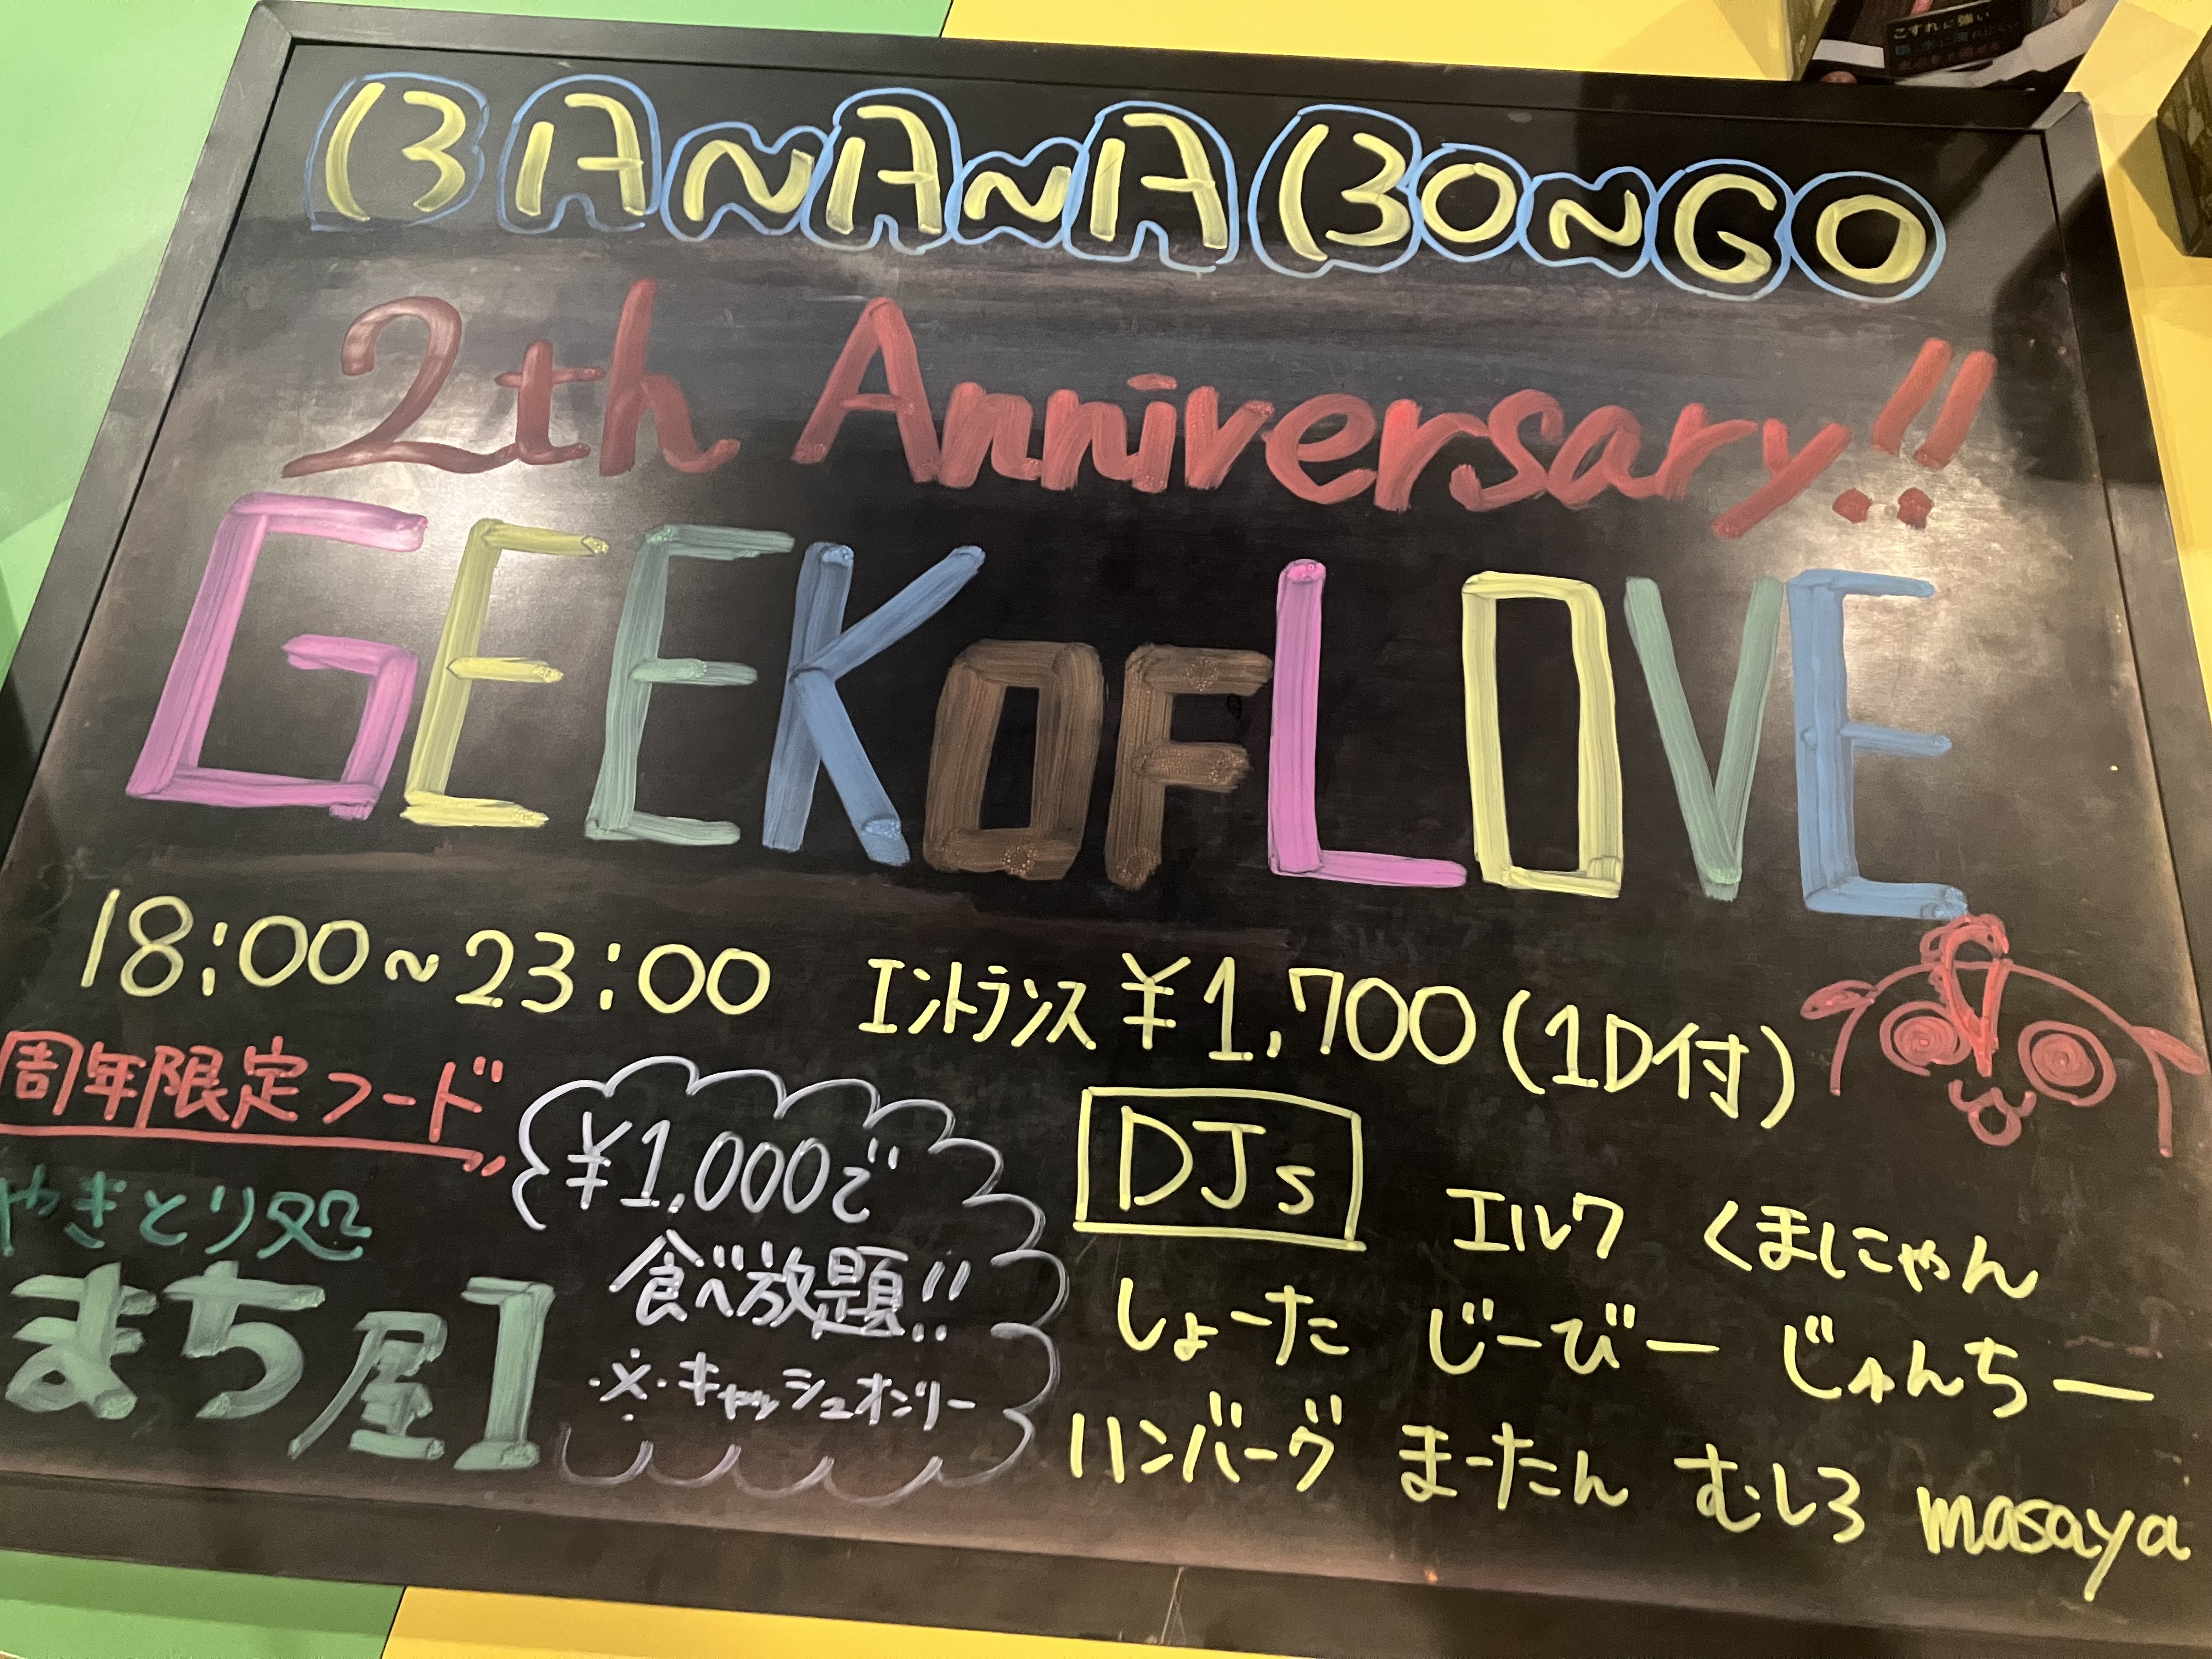 こすれに強い
BANANA BONGO
2th Anniversary!!
GEEK OF LOVE
18:00~23:00 エントランス ¥1,700(1D付)
周年限定フード
やきとり処
まち屋】
¥1,000で
食べ放題!!
※キャッシュオンリー
DJs エルク くましにゃん
しょーた じーびー じゅんちー
ハンバーグ まーたん むしろ masaya